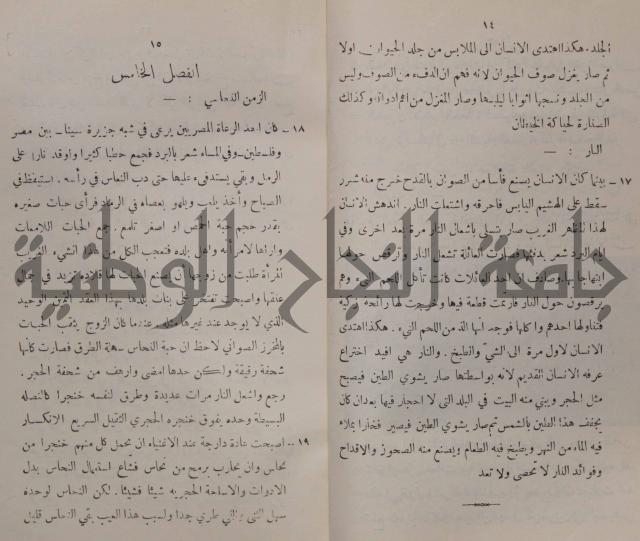 ١٤
الجلد. هكذا اهتدى الانسان الى الملابس من جلد الحيوان اولا
ثم صار يغزل صوف الحيوان لانه فهم ان الدفء من الصوف وليس
من الجلد ونسجها اثوابا ليلبسها وصار المغزل من اهم ادواته وكذلك
الصنارة لحياكة الخيطان
النار : —
١٧ - بينما كان الانسان يصنع فأسا من الصوان بالقدح خرج منه شرر
سقط على الهشيم اليابس فاحرقه واشتعلت النار. اندهش الانسان
لهذا المظهر الغريب صار يتسلى باشعال النار مرة بعد اخرى وفي
ايام البرد شعر بدفئها فصارت العائلة تشعل النار وترقص حولها
ابتهاجا بها وصادف ان احد العائلات كانت تأكل اللحم النيء وهم
يرقصون حول النار فارتمت قطعة فيها وخرجت لها رائحة زكية
فتناولها احدهم واكلها فوجد انها الذ من اللحم النيء. هكذا اهتدى
الانسان لاول مرة الى الشي والطبخ. والنار هي افيد اختراع
عرفه الانسان القديم لانه بواسطتها صار يشوي الطين فيصبح
مثل الحجر ويبني منه البيت في البلد التي لا احجار فيها بعد ان كان
يجفف هذا الطين بالشمس ثم صار يشوي الطين فيصير فخارا يملاء
فيه الماء من النهر ويطبخ فيه الطعام ويصنع منه الصحون والاقداح
وفوائد النار لا تحصى ولا تعد
١٥
الفصل الخامس
الزمن النحاسي : —
١٨ - كان احد الرعاة المصريين يرعى في شبه جزيرة سينا - بين مصر
وفلسطين - وفي المساء شعر بالبرد فجمع حطبا كثيرا واوقد نارا على
الرمل وبقي يستدفىء عليها حتى دب النعاس في رأسه. استيقظ في
الصباح وأخذ يلعب ويلهو بعصاه في الرماد فرأى حبات صغيره
بقدر حجم حبة الحمص او اصغر تلمع. جمع الحبات اللامعات
واراها لامرأته واهل بلده فتعجب الكل من هذا الشيء الغريب
امرأة طلبت من زوجها ان يصنع الحبات لها قلادة تزيد في جمال
عنقها واصبحت تفتخر على بنات بلدها بهذا العقد الثمين الوحيد
الذي لا يوجد عند غيرها مثله. عندما كان الزوج يثقب الحبات
بالمخرز الصواني لاحظ ان حبة النحاس سهلة الطرق فصارت كأنها
شحفة رقيقة ولكن حدها امضى وارهف من شحفة الحجر.
رجع واشعل النار مرات عديدة وطرق لنفسه خنجرا كالنصله
البسيطة وحده يفوق خنجره الحجري الثقيل السريع الانكسار
١٩ - اصبحت عادة دارجة عند الاغنياء ان يحمل كل منهم خنجرا من
نحاس وان يحارب برمح من نحاس فشاع استعمال النحاس بدل
الادوات والاسلحة الحجريه شيئا فشيئا. لكن النحاس لوحده
سهل الثني وبالتالي طري جدا ولسبب هذا العيب بقي النحاس قليل
جامعة النجاح الوطنية